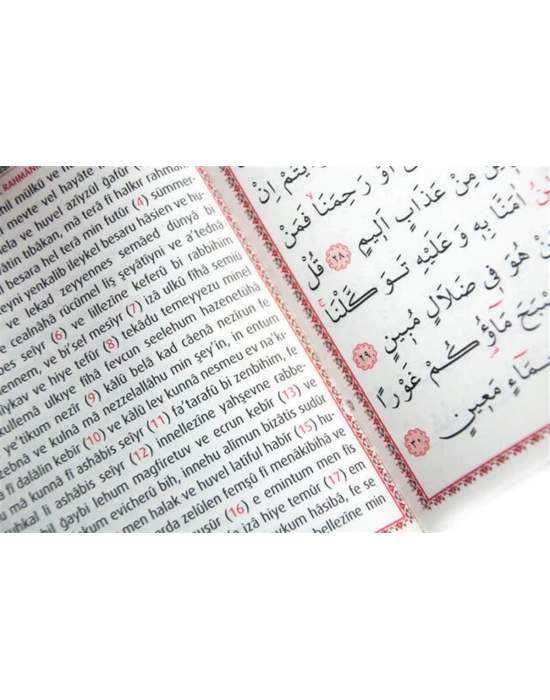 RAHMAN
mil mülkü ve h
meyte vel hayâte
ela ve huvel azîyzül gafûr
âtin tıbâkan, mâ terâ fî halkır rahmân
l besara hel terâ min futûr (4) sümmer
eyni yenkalib ileykel besaru hâsien ve hu
ve lekad zeyyennes semâed dünyâ bi
ve cealnâhâ rucûmel liş şeyâtîyni ve a'tednâ
bes seîyr (6) ve lillezîne keferû bi rabbihim
ennem, ve bi'sel mesîyr (7) izâ ulkû fîhâ semiû
hîykav ve hiye tefûr (8) tekâdu temeyyezu minel
küllemâ ulkıye fîhâ fevcun seelehum hazenetühâ
e'tikum nezîr (9) kâlû belâ kad câenâ nezîrun fe
zebnâ ve kulnâ mâ nezzelallâhu min şey'in, in entum
â fî dalâlin kebîr (10) ve kâlû lev kunnâ nesmeu ev na'k
mâ kunnâ fî ashâbis seîyr (11) fa'terafû bi zenbihim, fe
uhkal li ashâbis seîyr (12) innellezîne yahşevne rabbe
bil ğaybi lehum mağfiretuv ve ecrun kebîr (13) ve
kum evicherû bih, innehu alîmun bizâtis sudûr
men halak ve huvel latîful habîr (15) hu
arda zelûlen femşû fî menâkibihâ ve
nuşûr (16) e emintum men fis
e izâ hiye temûr (17) em
aykum hâsibâ, fe se
bellezîne min
اَوْ رَحِمَنَاۙ فَمَنْ
مِنْ عَذَابٍ اَلِيمٍ ﴿٢٨﴾ قُلْ
اٰمَنَّا بِهِ وَعَلَيْهِ تَوَكَّلْنَاۚ
هُوَ فِي ضَلَالٍ مُبِينٍ ﴿٢٩﴾
مَاؤُكُمْ غَوْرًا
مَعِينٍ ﴿٣٠﴾